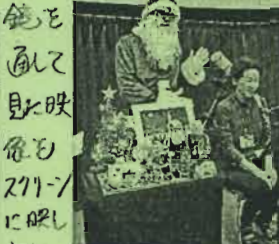 鏡を
通して
見た映
像を
スクリーン
に映し